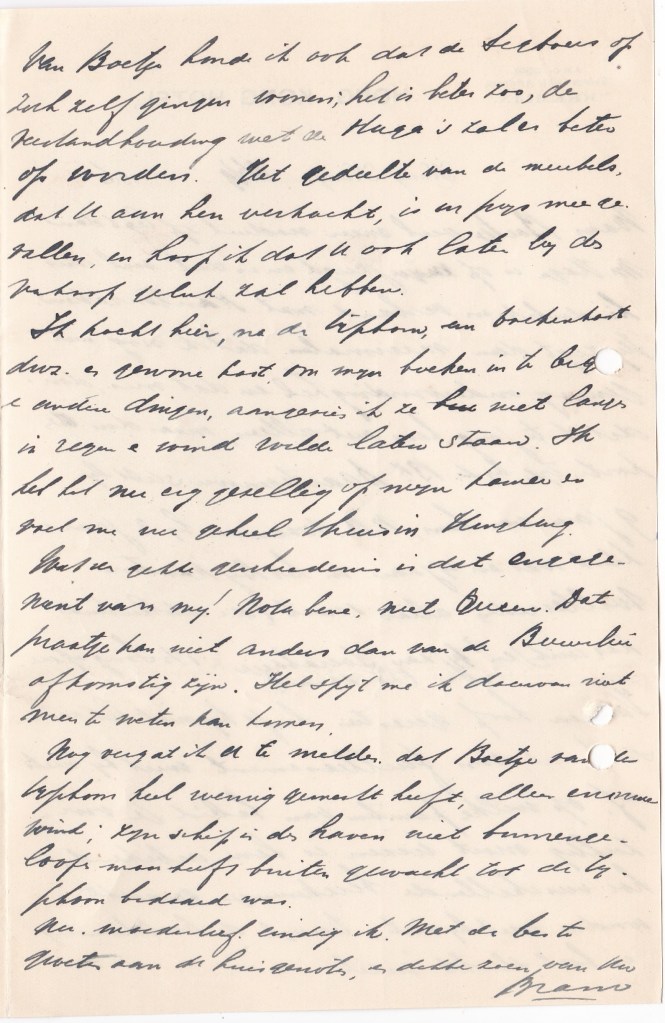 Van Boetje hoorde ik ook dat de Seeboers op
zich zelf gingen wonen; het is beter zoo, de
verstandhouding met de Huga's zal er beter
op worden. Het gedeelte van de meubels,
dat U aan hen verkocht, is in prijs mee ge-
vallen, en hoop ik dat U ook later bij de
verkoop geluk zal hebben.
Ik kocht hier, na de typhoon, een boekenkast
d.w.z. een gewone kast om mijn boeken in te
e andere dingen, aangezien ik ze niet langer
in regen e wind wilde laten staan. Ik
heb het nu erg gezellig op mijn kamer en
voel me nu geheel thuis in
Wat een gekke geschiedenis is dat engage-
ment van mij! Nota bene, met Dat
praatje kan niet anders dan van de
afkomstig zijn. Het spijt me ik daarvan niet
meer te weten kan komen.
Nog vergat ik U te melden, dat Boetje van de
typhoon heel weinig gemerkt heeft, alleen enorme
wind; zijn schip is de haven niet binnenge-
loopen maar heeft buiten gewacht tot de ty-
phoon bedaard was.
Nu moederlief eindig ik. Met de beste
groeten aan de huisgenoten, en dikke zoen van Uw
Bram